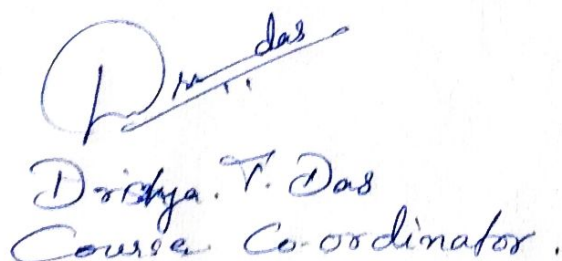 das
Dridhya. T. Das
Course Co-ordinator.